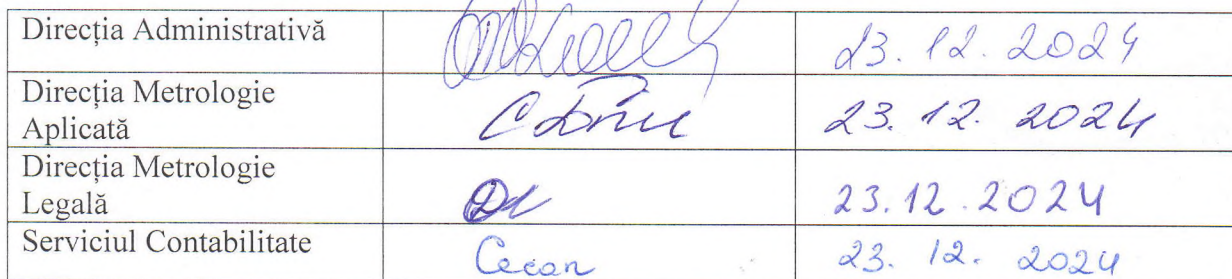 Direcția Administrativă 23.12.2024
Direcția Metrologie
Aplicată 23.12.2024
Direcția Metrologie
Legală 23.12.2024
Serviciul Contabilitate 23.12.2024